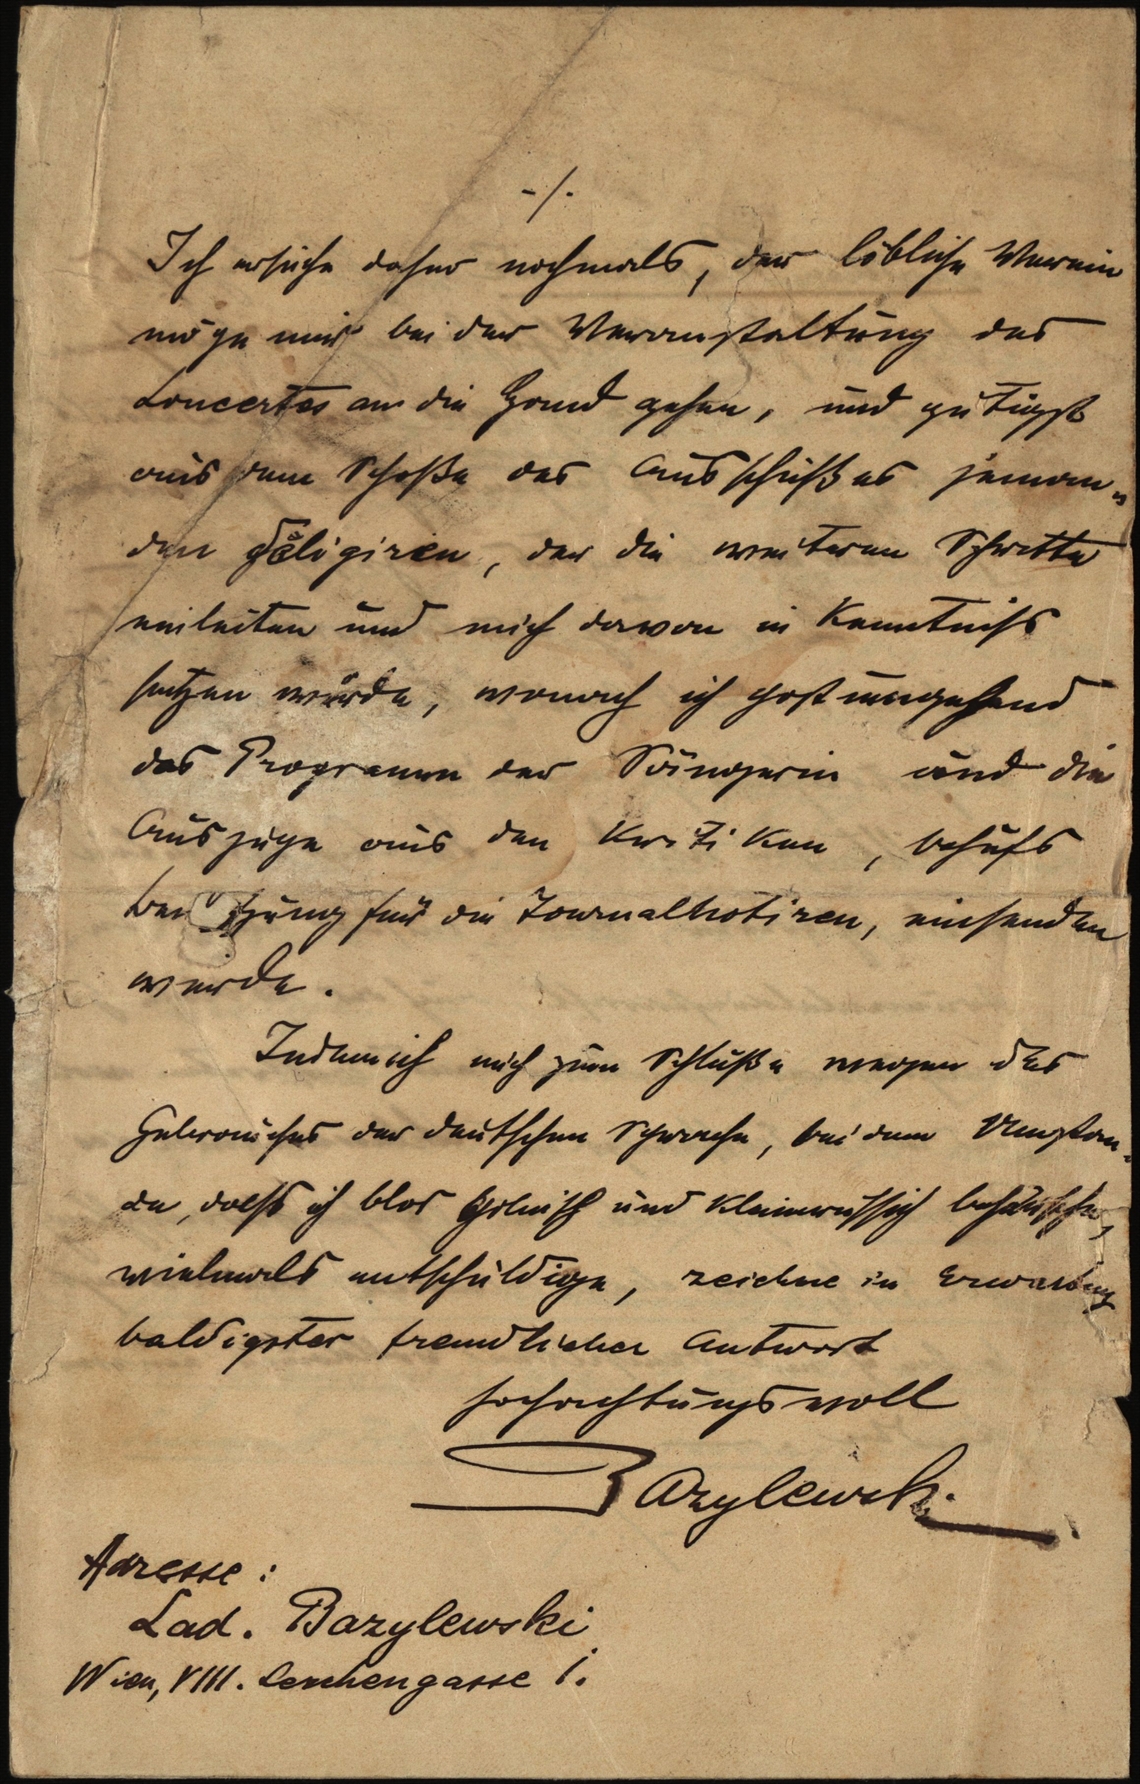 -/.
Ich ersuche daher nochmals, der löbliche Verein
möge mir bei der Veranstaltung des
Concertes an die Hand gehen, und gütigst
aus dem Schoße des Ausschußes jeman„
den deligiren, der die weiteren Schritte
einleiten und mich davon in Kenntniss
setzen würde, wonach ich postumgehend
das Programm der Sängerin und die
Auszüge aus den Kritiken, behufs
für die Journalnotizen, einsenden
werde.
Indem ich mich zum Schluße wegen des
Gebrauches der deutschen Sprache, bei dem Umstan„
de, dass ich blos polnisch und kleinrussisch beherrsche,
vielmals entschuldige, zeichne in Erwartung
baldigster freundlicher Antwort
hochachtungsvoll
Bazylewski.
Adresse:
Lad. Bazylewski
Wien, VIII. Lerchengasse 1.